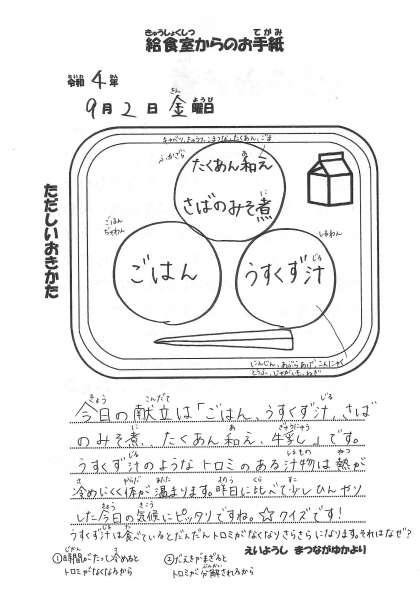 給食室からのお手紙
令和4年
9月2日金曜日
ただしいおきかた
キャベツ、きゅうり、こまつな、たくあん、ごま
ふかざら
たくあん和え
さばのみそ煮
ごはん
ちゃわん
ごはん
しるわん
うすくず汁
にんじん、あぶらあげ、こんにゃく
とうふ、じゃがいも、ねぎ
今日の献立は「ごはん、うすくず汁、さば
のみそ煮、たくあん和え、牛乳」です。
うすくず汁のようなトロミのある汁物は熱が
冷めにくく体が温まります。昨日に比べて少しひんやり
した今日の気候にピッタリですね。☆クイズです!
うすくず汁は食べているとだんだんトロミがなくなりさらさらになります。それはなぜ?
①時間がたっし冷めると
トロミがなくなるから
②だえきがまざると
トロミが分解されるから
えいようし まつながゆかより